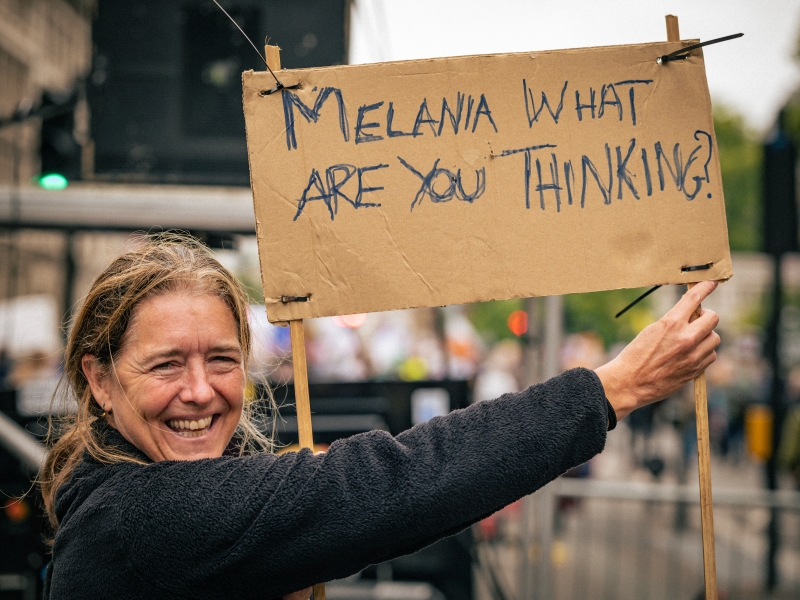 MELANIA WHAT
ARE YOU THINKING?